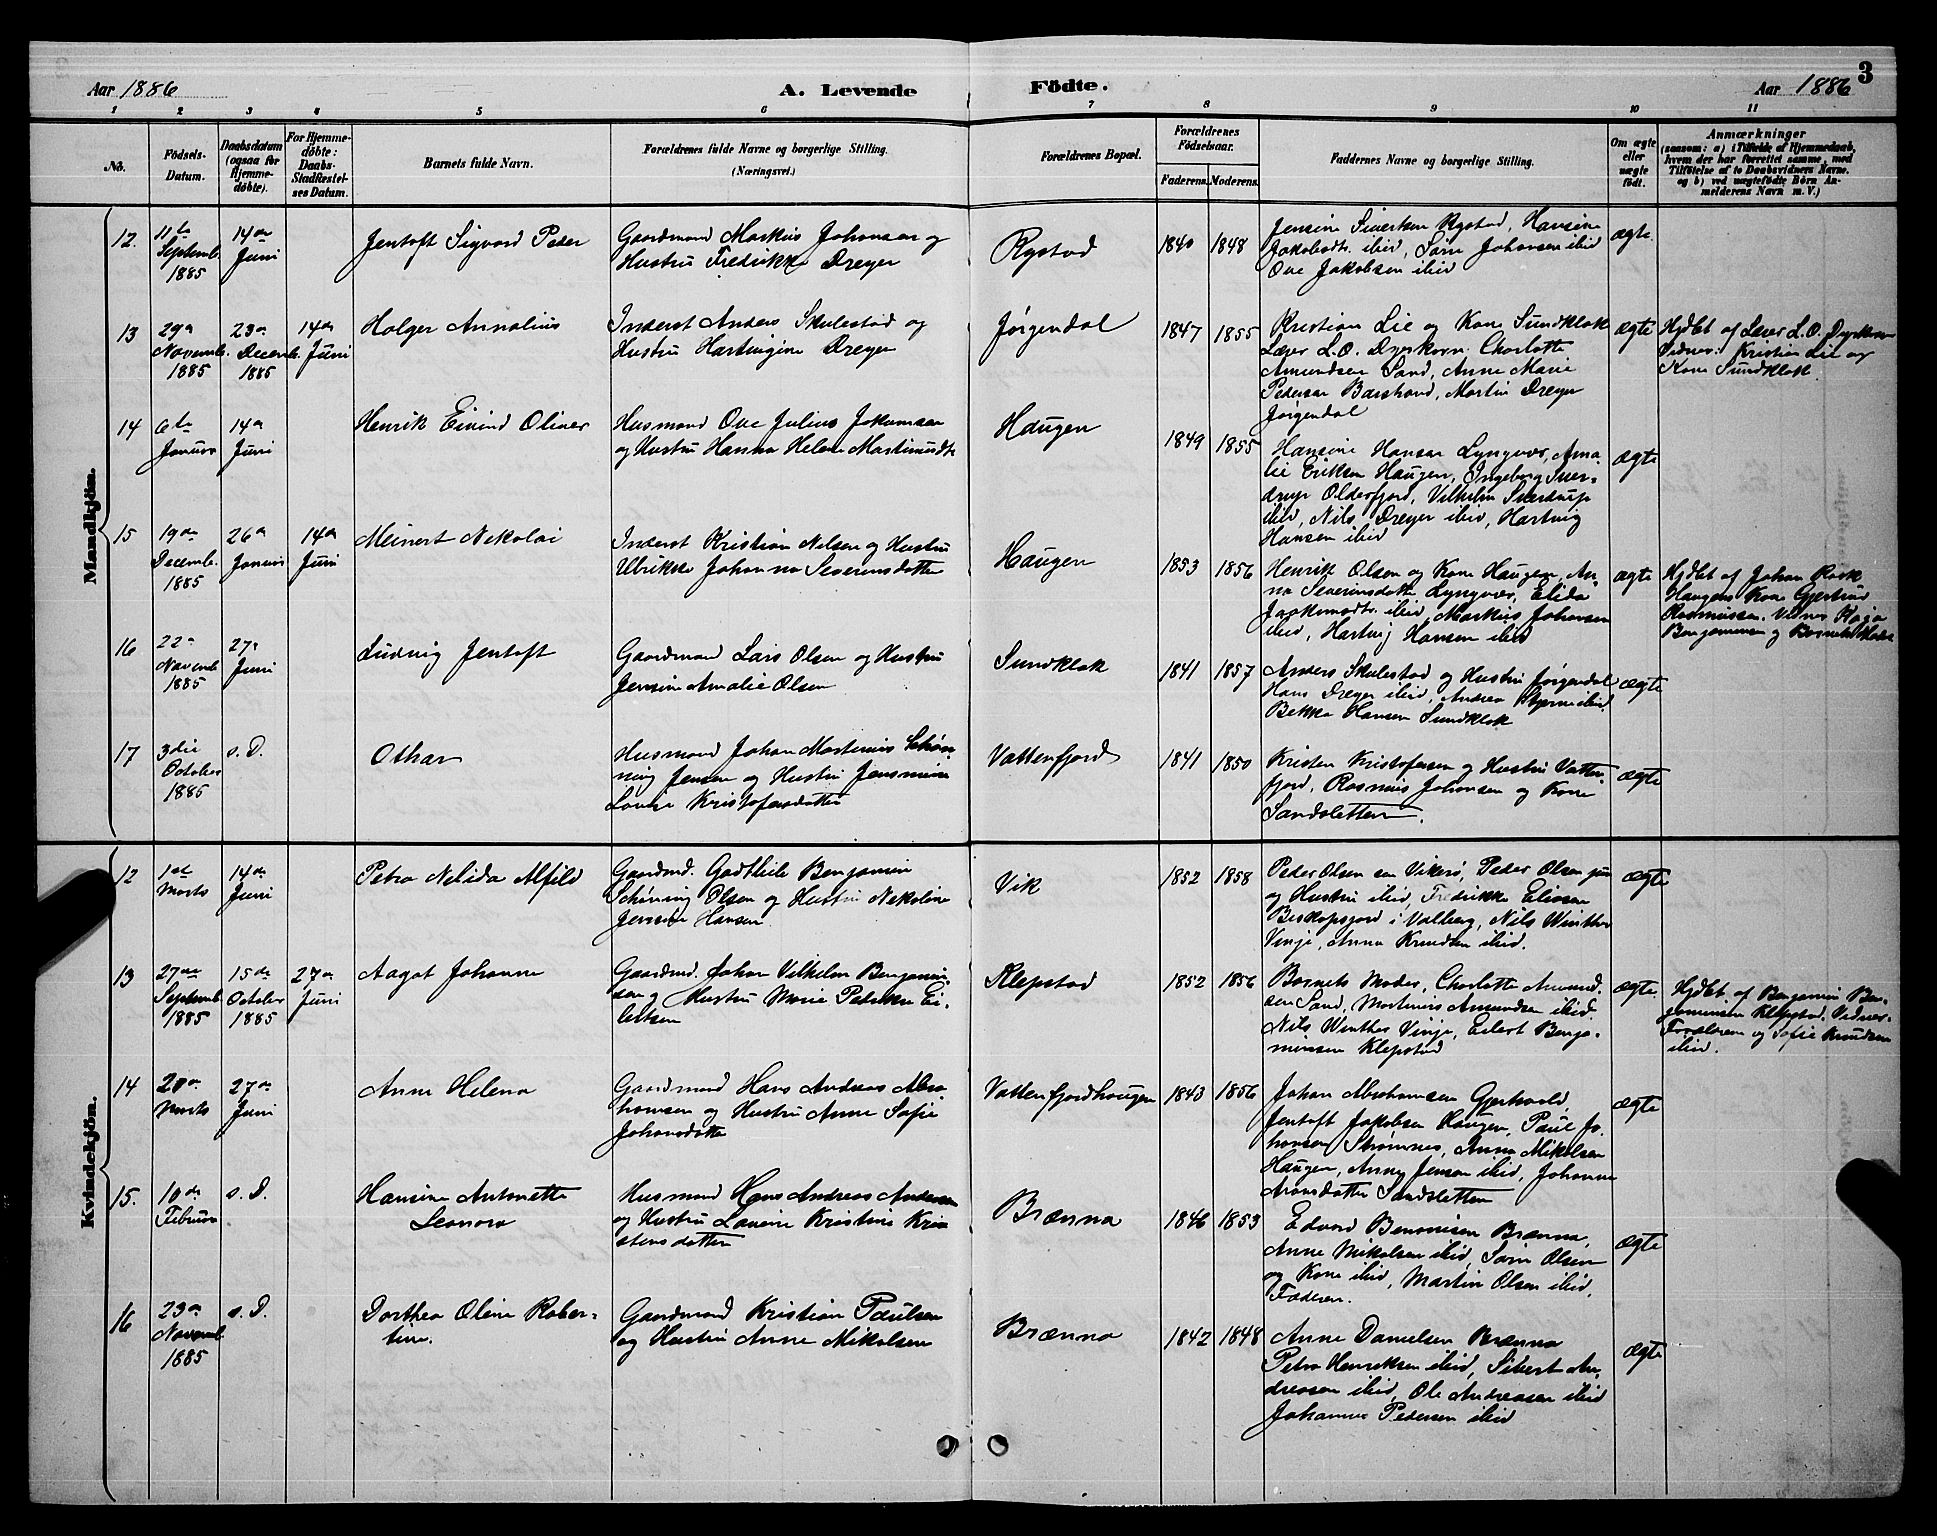 3
Aar 1886 A. Levende Födte. Aar 1886
1 2 3 4 5 6 7 8 9 10 11
No.
Födsels-
Datum.
Daabsdatum
(ogsaa for
Hjemme-
döbte).
For Hjemme-
döbte:
Daabs-
Stadfæstel-
ses Datum.
Barnets fulde Navn.
Forældrenes fulde Navne og borgerlige Stilling.
(Næringsvei.)
Forældrenes Bopæl.
Forældrenes
Födselsaar.
Faderens. Moderens.
Faddernes Navne og borgerlige Stilling.
Om ægte
eller
uægte
födt.
Anmærkninger
(saasom: a) i Tilfælde af Hjemmedaab,
hvem der har forrettet samme, med
Tilföielse af to Daabsvidners Navne.
og b) ved uægtefödte Börn An-
melderens Navn m. V.)
Mandkjön.
12. 11te
Septemb.
1885
14de
Juni
Jentoft Sigvard Peder
Gaardmand Markus Johansen og
Hustru Fredrikke Dreyer
Rystad
1840 1848
Jensine Sivertsen Rystad, Hansine
Jakobsdtr. ibid, Søren Johansen ibid
Ove Jakobsen ibid
ægte
13 29de
Novemb.
1885
23de
Decemb.
1885
14de
Juni
Holger Annalius
Inderst Anders Skulestad og
Hustru Hartvigine Dreyer
Jørgendal
1847 1855
Kristian Lie og Kone Sundklak
Lærer L. O. Dyrkorn. Charlotte
Amundsen Sand, Anne Marie
Pedersen Barstrand, Martin Dreyer
Jørgendal
ægte
Hjdbt af Lærer L. O. Dyrkorn
Vidner: Kristian Lie og
Kone Sundklak
14 6te
Januar
14de
Juni
Henrik Eivind Oliver
Husmand Ove Julius Jokumsen
og Hustru Hanna Helene Martinusdtr
Haugen
1849 1855
Hansine Hansen Lyngvær, Ama-
lie Eriksen Haugen, Ingeborg Sver-
drup Olderfjord, Vilhelm Sverdrup
ibid, Nils Dreyer ibid, Hartvig
Hansen ibid
ægte
15 19de
Decemb.
1885
26de
Januar
14de
Juni
Meinert Nekolai
Inderst Kristian Nilsen og Hustru
Ulrikke Johanna Severinsdatter
Haugen
1853 1856
Henrik Olsen og Kone Haugen, An-
na Severinsdatter Lyngvær, Elida
ibid, Markus Johansen
ibid, Hartvig Hansen ibid
ægte
Hjdbt af Johan Rask
Haugens Kone Gjertrud
Rasmussen. Vidner Kaja
Benjaminsen og Barnets Moder
16 22de
Novemb
1885
27de
Juni
Ludvig Jentoft
Gaardmand Lars Olsen og Hustru
Jensine Amalie Olsen
Sundklak
1841 1857
Anders Skulestad og Hustru Jørgendal
Hans Dreyer ibid, Andrea Stjerne ibid
Bekka Hansen Sundklak
ægte
17 3die
October
1885
s. D.
Othar
Husmand Johan Martinus Schøn-
ning Jensen og Hustru Jensmine
Lovise Kristofersdatter
Vattenfjord
1841 1850
Kristen Kristofersen og Hustru Vatten-
fjord, Rasmus Johansen og Kone
Sandsletten.
ægte
Kvindekjön.
12 1ste
Marts
14de
Juni
Petra Nelida Alfild
Gaardmd. Godtheile Benjamin
Schønning Olsen og Hustru Nekoline
Jensine Hansen
Vik
1852 1858
Peder Olsen sen Vikerø, Peder Olsen jun
og Hustru ibid, Fredrikke Eliasen
Biskopsgord i Valberg, Nils Winther
Vinje, Anna Knudsen ibid.
ægte
13 27de
Septemb
1885
15de
October
1885
27de
Juni
Aagot Johanne
Gaardmd. Johan Vilhelm Benjamin-
sen og Hustru Marie Petrikke Ei-
lertsen
Klepstad
1852 1856
Barnets Moder, Charlotte Amund-
sen Sand, Martinus Amundsen ibid.
Nils Winther Vinje, Eilert Benja-
minsen Klepstad
ægte
Hjdbt. af Benjamin Ben-
jaminsen Klepstad. Vidner:
Forældrene og Sofie Knudsen
ibid.
14 20de
Marts
27de
Juni
Anne Helena
Gaardmand Hans Andreas Abra-
hamsen og Hustru Anne Sofie
Johansdatter
Vattenfjordhaugen
1843 1856
Johan Abrahamsen Gjerkvold,
Jentoft Jakobsen Haugen, Paul Jo-
hansen Strømnes, Anna Mikalsen
Haugen, Anne Jensen ibid, Johanna
Aronsdatter Sandsletten
ægte
15. 10de
Februar
s. D.
Hansine Antonette
Leonora
Husmand Hans Andreas Andersen
og Hustru Lovise Kristine Kris-
tensdatter
Brænna
1846 1853
Edvard Benonisen Brænna,
Anne Mikalsen ibid, Søren Olsen
og Kone ibid, Martin Olsen ibid,
Faderen.
ægte
16 23de
Novemb.
1885
s. D.
Dorthea Oline Rober-
tine.
Gaardmand Kristian Paulsen
og Hustru Anne Mikalsen
Brænna
1842 1848
Anne Danielsen Brænna
Petra Henriksen ibid, Sivert An-
dreasen ibid, Ole Andreasen ibid
Johannes Pedersen ibid
ægte